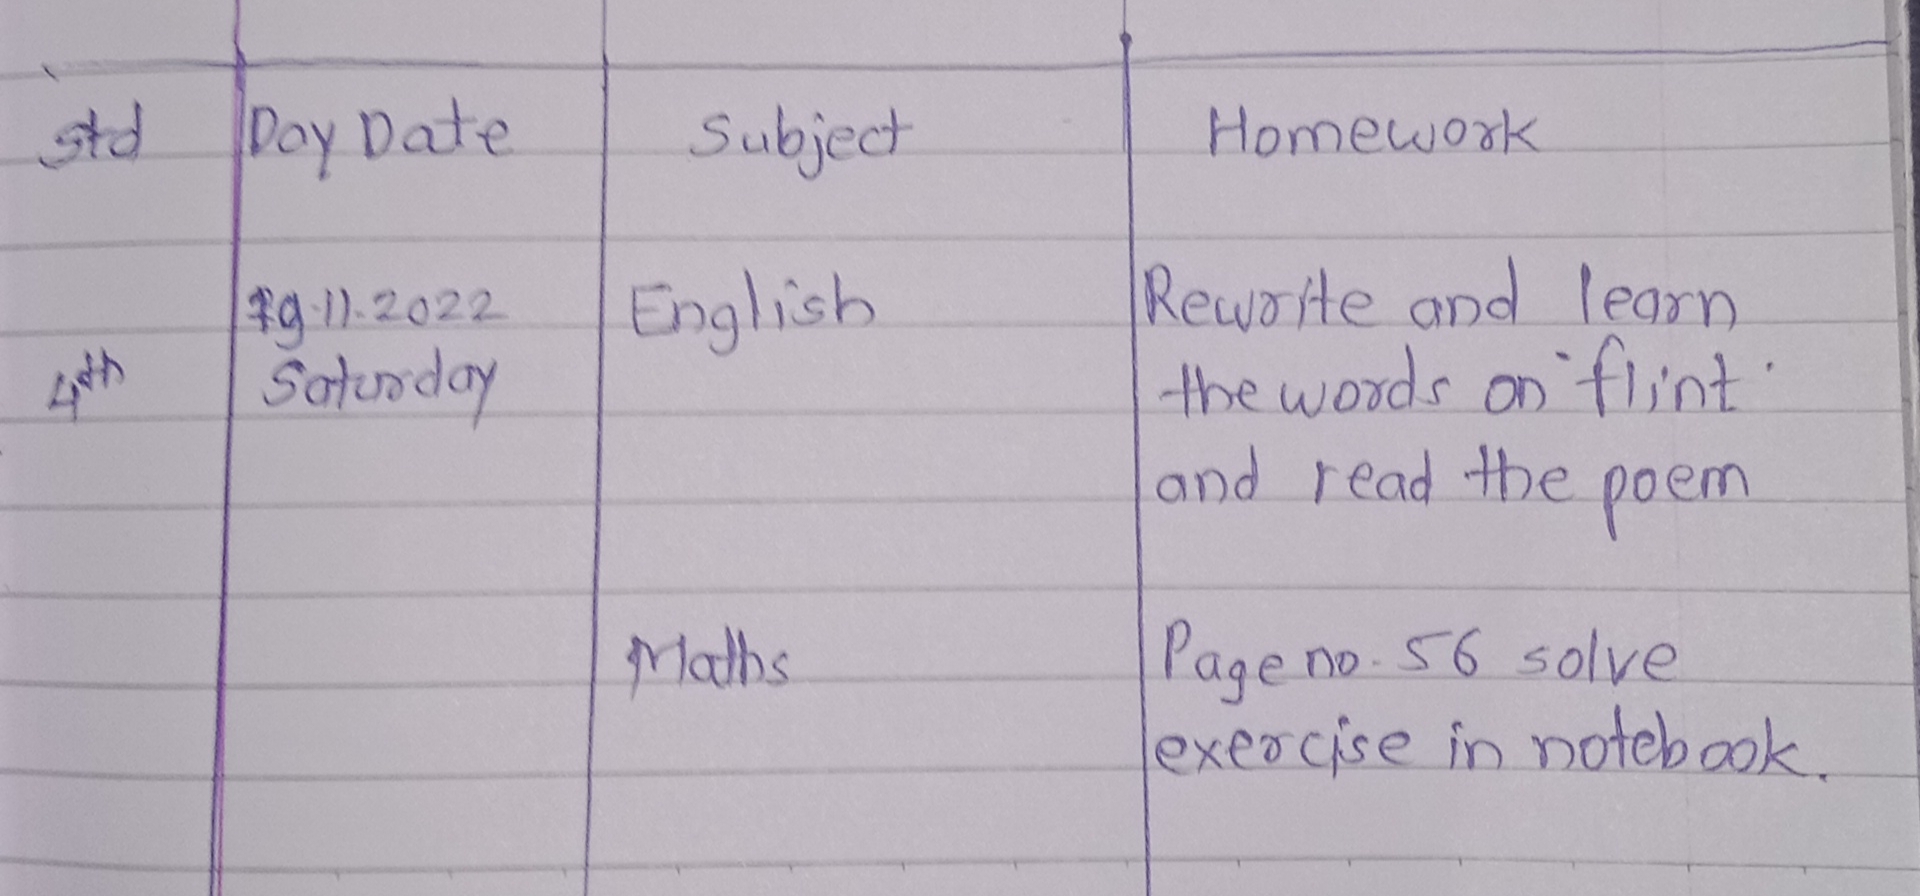 std Day Date Subject Homework
19.11.2022 English Rewrite and learn
4th Saturday the words on "flint"
and read the poem
Maths Page no. 56 solve
exercise in notebook.